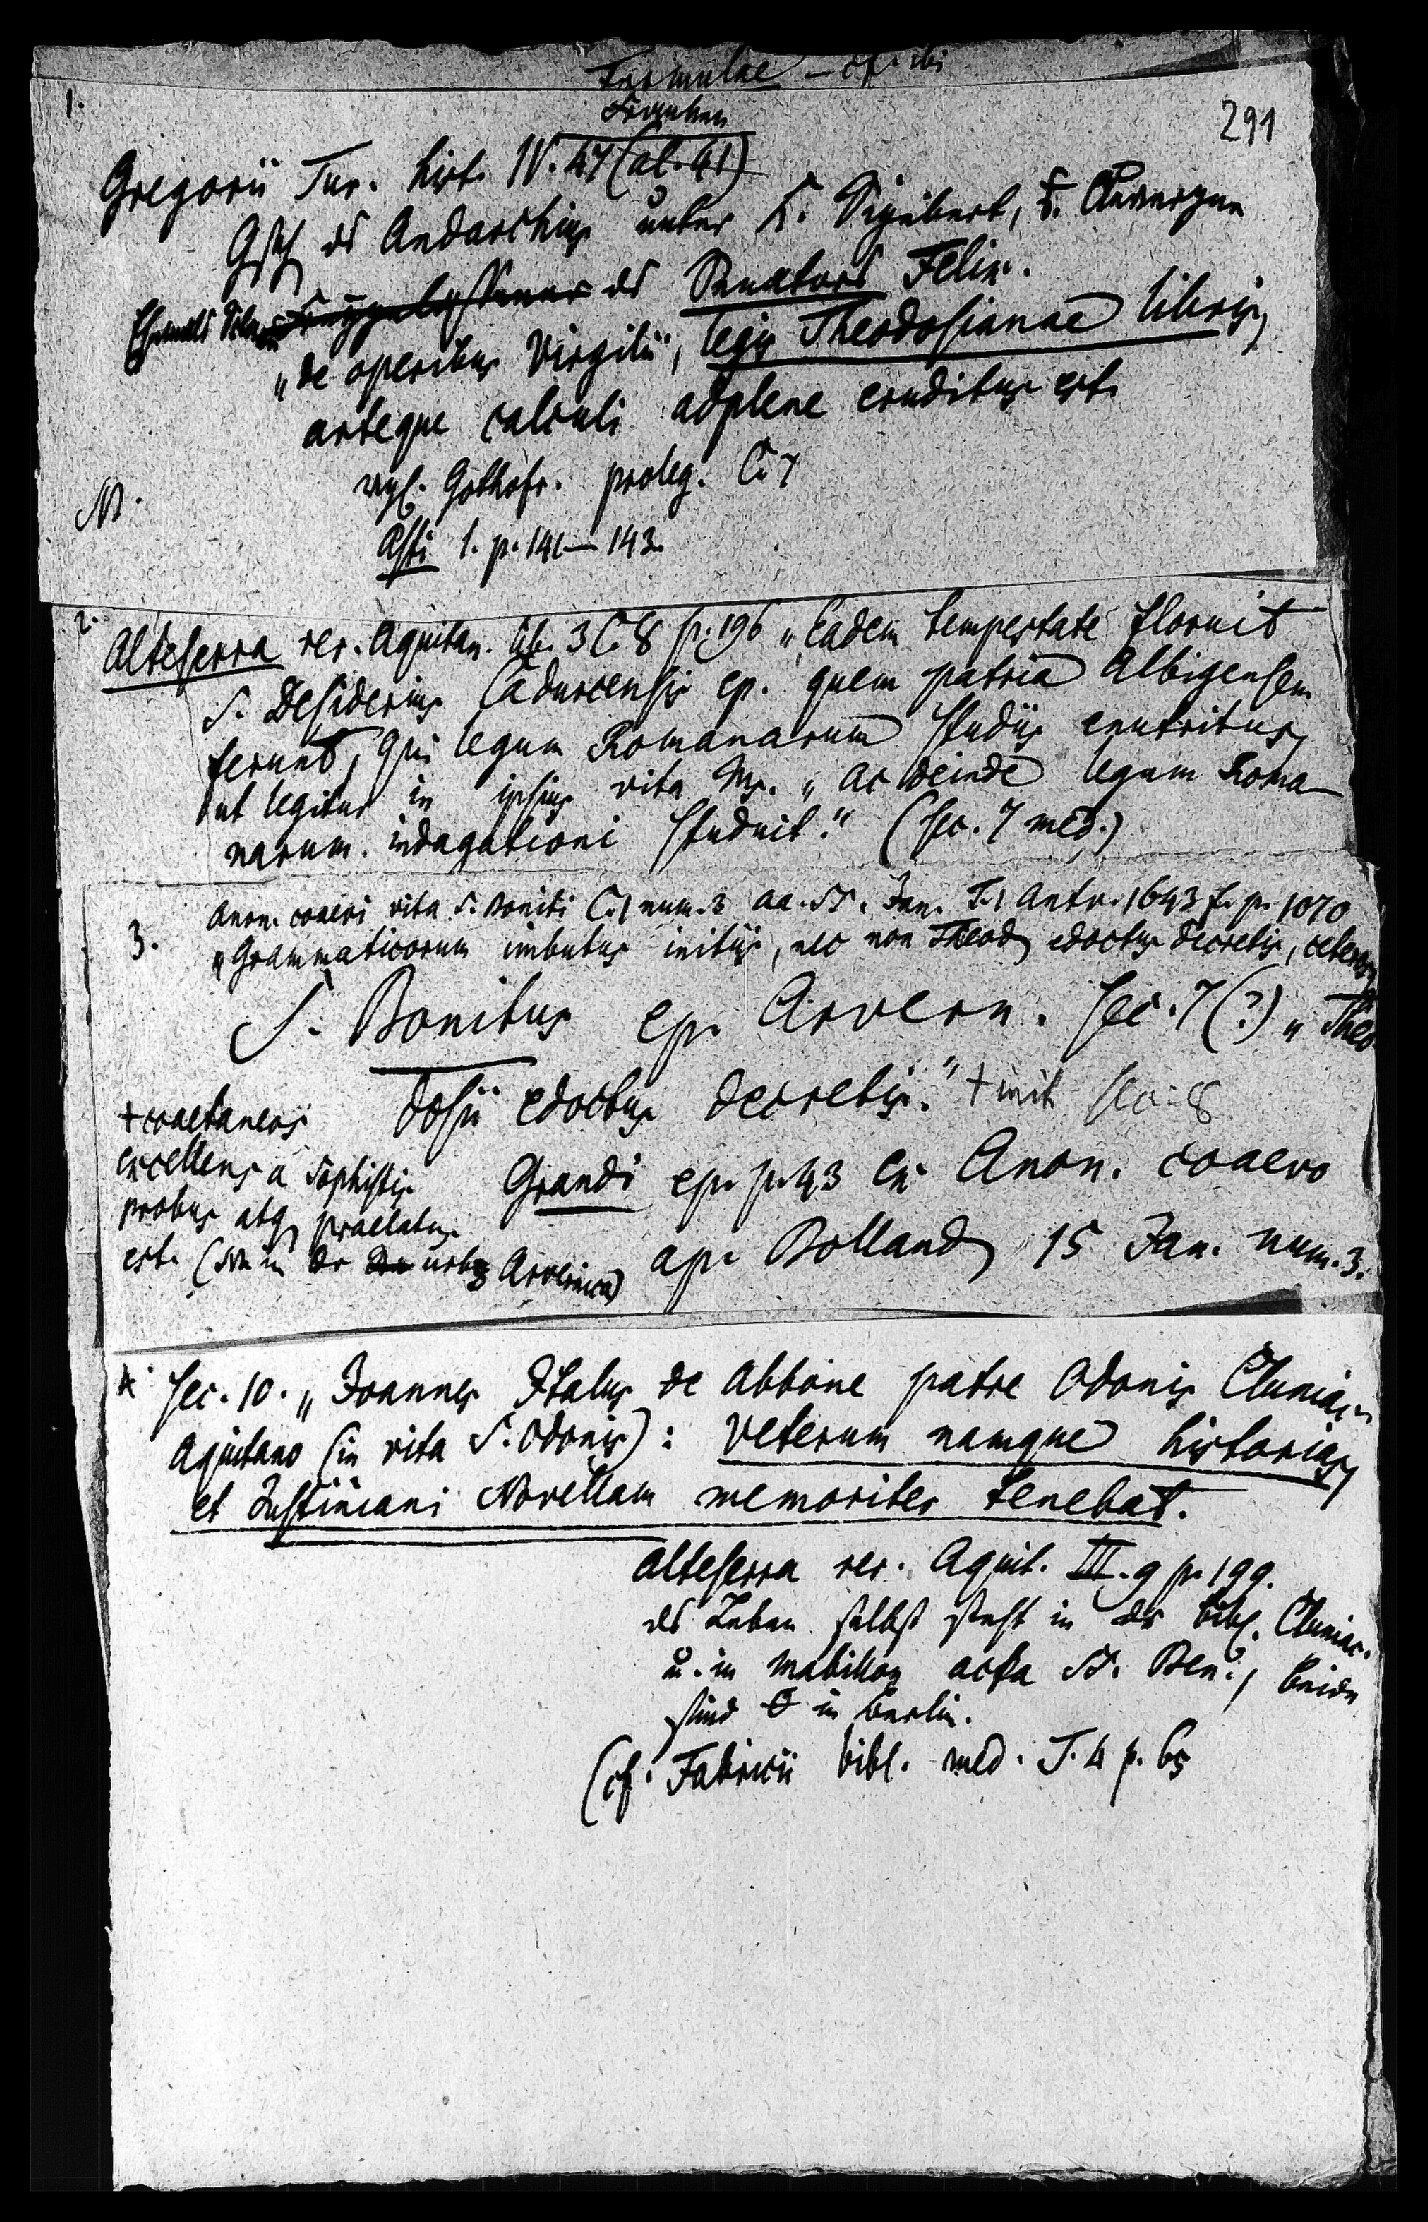 Formulae – cf. ibi
Franken
291
1.
Gregorii Tur. hist. IV. 47 (al. 41)
Gsch ds Andarchius unter K. Sigebert, i. Auvergne
Ehemals Sclav ds Senators Felix.
„de operibus Virgilii, legis Theodosianae libris,
arteque calculi adplene eruditus est.
vgl. Gothofr. proleg. C. 7
NB.
Asti 1. p. 141–143.
2.
Alteserra rer. Aquitan. lib. 3 C. 8 p. 196 „Eadem tempestate floruit
S. Desiderius Cadurcensis ep. quem patria Albigensem
ferunt, qui legum Romanarum studiis enutritus,
ut legitur in ipsius vita Ms. „ac deinde legum Roma-
narum indagationi studuit." (sec. 7 med.)
3.
Anon. coaevi vita S. Boniti C. 1 num. 3 aa. SS. Jan. T. 1 Antv. 1643 f. p. 1070
„Grammaticorum imbutus initiis, nec non Theod. edoctus decretis, ceteros
S. Bonitus ep. Arvern. sec. 7 (?) „Theo
dosii edoctus decretis." + init sec. 8
+ coaetaneos
excellens a sophistis
probus atq praelatus
est. (NB in der urbe Arvernica)
Grandi ep. p. 43 ex Anon. coaevo
ap. Bolland 15 Jan. num. 3.
4.
sec. 10. „Joannes Italus de Abbone patre Odonis Cluniac.
Aquitano (in vita S. Odonis): veterum namque historias,
et Justiniani Novellam memoriter tenebat.
Alteserra rer. Aquit. III. 9 p. 199.
ds Leben selbst steht in der bibl. Cluniac.
u. in Mabillon acta SS. Ben., beide
sind in Berlin.
(cf. Fabricii bibl. med. T. 4 p. 65